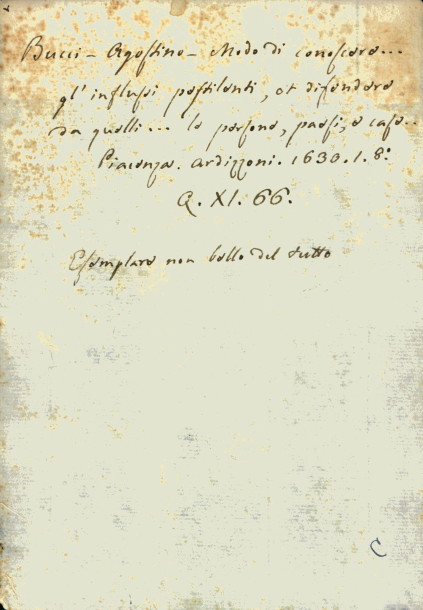 Bucci - Agostino - Modo di conoscere...
gl'influssi pestilenti, et difendere
da quelli... le persone, paesi, e case..
Piacenza. Ardizzoni. 1630. 1. 8.º
Q. XI. 66.
Esemplare non bello del tutto
C